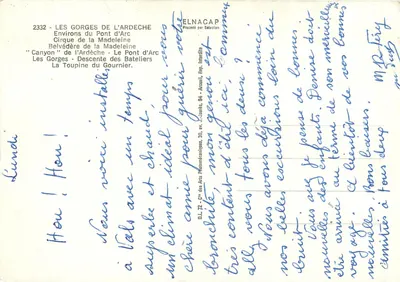 2332 - LES GORGES DE L'ARDECHE
Environs du Pont d'Arc
Cirque de la Madeleine
Belvédère de la Madeleine
"Canyon" de l'Ardèche - Le Pont d'Arc
Les Gorges - Descente des Bateliers
La Toupine du Gournier.
ELNACAP
Lundi
Hou ! Hou !
Nous voici installés
à Vals avec un temps
superbe et chaud.
un climat idéal pour vous
chère amie pour guérir votre
bronchite,
très content d'être ici. Comme
allez vous tous les deux ?
Nous avons déjà commencé
nos belles excursions loin du
bruit.
Vous aurez je pense de bonnes
nouvelles des enfants. Denise doit
être arrivée au terme de son merveilleux
voyage. A bientôt de vos bonnes
nouvelles. Bons baisers.
amitiés à tous deux